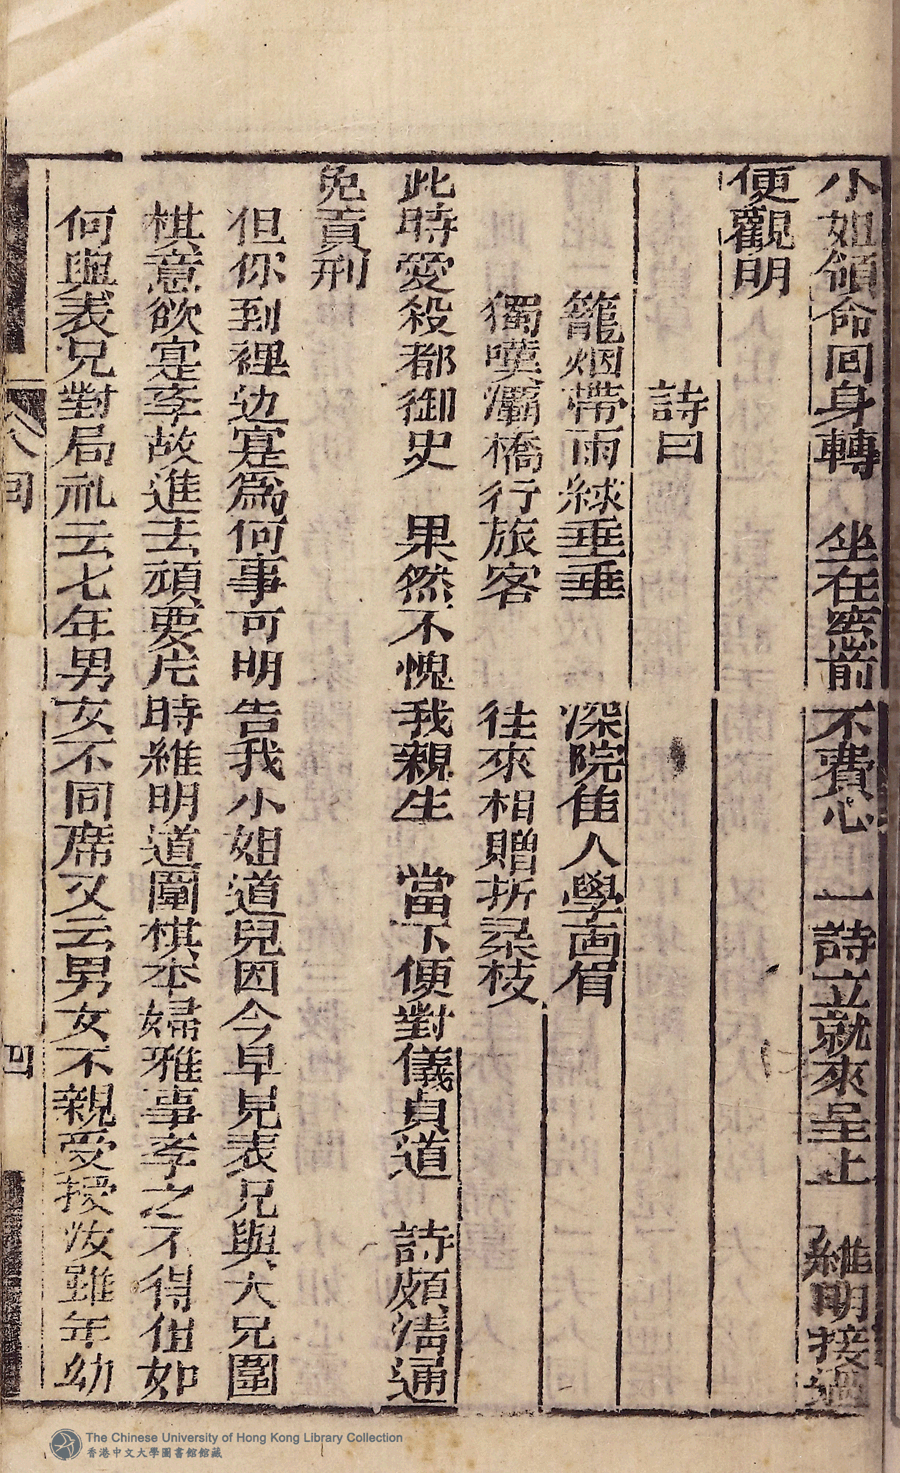 小姐領命囘身轉 坐在窓前不費心 一詩立就來呈上 維明接過
便觀明
詩曰
籠烟帶雨綠垂垂 深院佳人學画眉
獨嘆灞橋行旅客 往來相贈折柔枝
此時愛殺都御史 果然不愧我親生 當下便對儀貞道 詩頗清通
免責刑
但你到裡边寔爲何事可明告我小姐道兒因今早見表兄與大兄圍
棋意欲寔孝故進去頑要片時維明道圍棋本婦雅事孝之不得但如
何與表兄對局礼云七年男女不同席又云男女不親受授汝雖年幼
八囘
四
The Chinese University of Hong Kong Library Collection
香港中文大學圖書館館藏